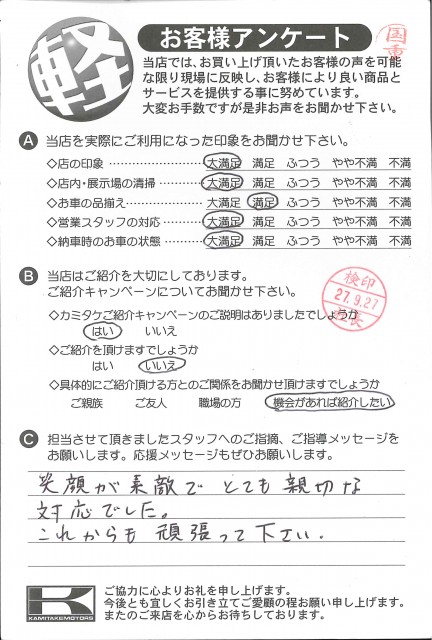 軽
お客様アンケート
国重
当店では、お買い上げ頂いたお客様の声を可能
な限り現場に反映し、お客様により良い商品と
サービスを提供する事に努めています。
大変お手数ですが是非お声をお聞かせ下さい。
A 当店を実際にご利用になった印象をお聞かせ下さい。
◇店の印象 大満足 満足 ふつう やや不満 不満
◇店内・展示場の清掃 大満足 満足 ふつう やや不満 不満
◇お車の品揃え 大満足 満足 ふつう やや不満 不満
◇営業スタッフの対応 大満足 満足 ふつう やや不満 不満
◇納車時のお車の状態 大満足 満足 ふつう やや不満 不満
B 当店はご紹介を大切にしております。
ご紹介キャンペーンについてお聞かせ下さい。
検印
27.9.27
◇カミタケご紹介キャンペーンのご説明はありましたでしょうか
はい いいえ
◇ご紹介を頂けますでしょうか
はい いいえ
◇具体的にご紹介頂ける方とのご関係をお聞かせ頂けますでしょうか
ご親族 ご友人 職場の方 機会があれば紹介したい
C 担当させて頂きましたスタッフへのご指摘、ご指導メッセージを
お願いします。応援メッセージもぜひお願いします。
笑顔が素敵でとても親切な
対応でした。
これからも頑張って下さい.
K
KAMITAKEMOTORS
ご協力に心よりお礼を申し上げます。
今後とも宜しくお引き立てご愛顧の程お願い申し上げます。
またのご来店を心からお待ちしております。